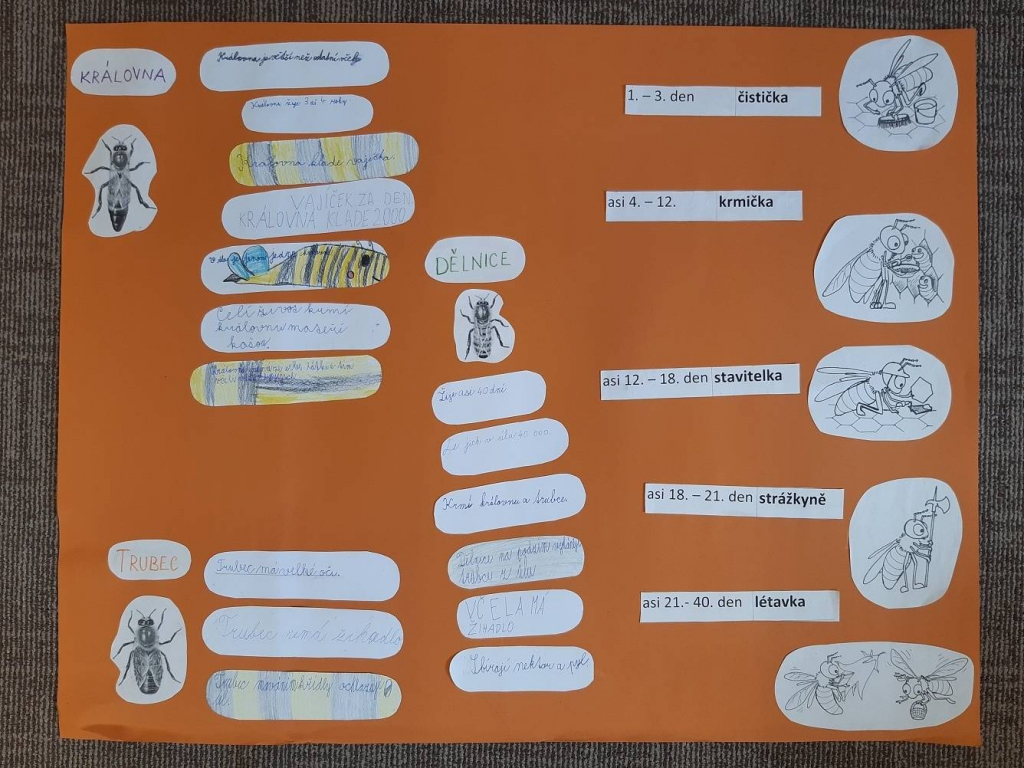 KRÁLOVNA
Královna je větší než ostatní včely
Královna žije 3 až 4 roky
Královna klade vajíčka.
VAJÍČEK ZA DEN
KRÁLOVNA KLADE 2000
Celí život krmí
královnu mateří
kašou.
TRUBEC
Trubec má velké oči.
Trubec nemá žihadlo
Trubec křídly ochlazuje
úl.
DĚLNICE
Žije asi 40 dní
Je jich v úlu 40 000
Krmí královnu a trubce.
Dělnice na podzim
trubce z úlu
VČELA MÁ
ŽIHADLO
Sbírají nektar a pyl
1. – 3. den čistička
asi 4. – 12. krmička
asi 12. – 18. den stavitelka
asi 18. – 21. den strážkyně
asi 21.- 40. den létavka